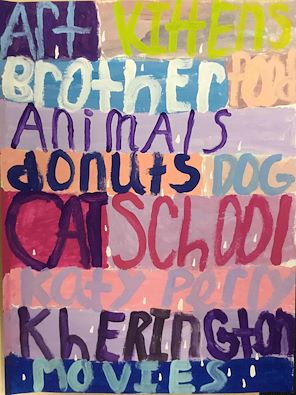 Art Kittens
Brother food
ANiMALS
donuts DOG
CAT SChOOl
Katy Perry
KhERINGton
MOVIES